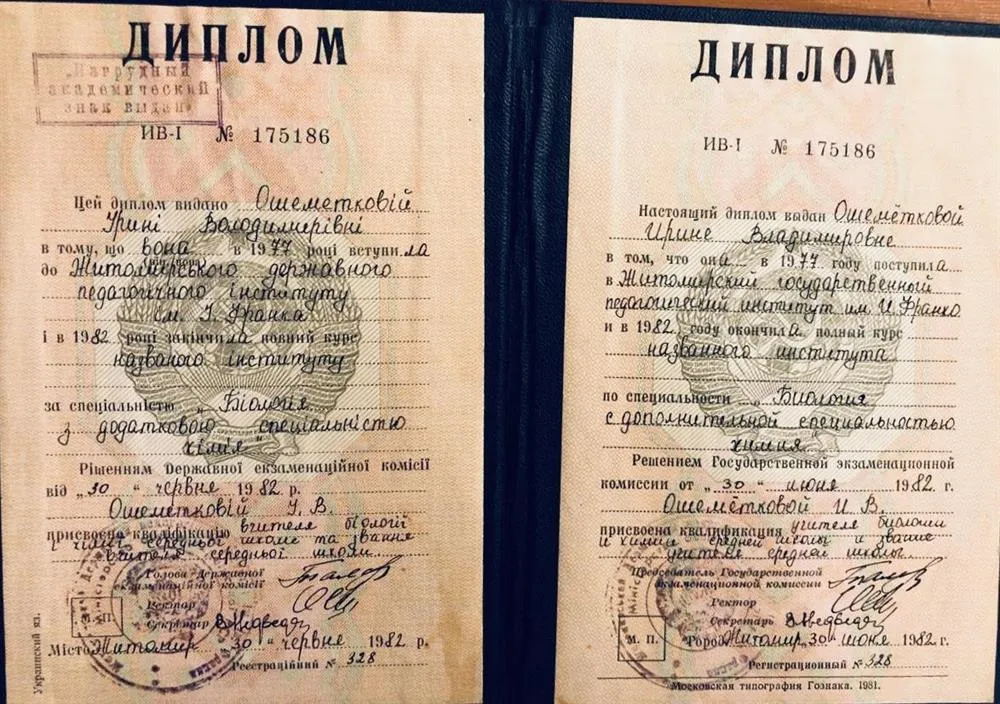 ДИПЛОМ
„Нагрудный
академический
знак выдан"
ИВ-I № 175186
Цей диплом видано Ошеметковій
Ірині Володимирівні
в тому, що вона в 1977 році вступила
до Житомирського державного
педагогічного інституту
ім. І. Франка
і в 1982 році закінчила повний курс
названого інституту
за спеціальністю „Біологія
з додатковою спеціальністю
хімія"
Рішенням Державної екзаменаційної комісії
від „30" червня 1982 р.
Ошеметковій І. В.
присвоєно кваліфікацію вчителя біології
і хімії середньої школи та звання
вчителя середньої школи.
Голова Державної
екзаменаційної комісії
Ректор
Секретар
М. П.
Місто Житомир 30 " червня 1982 р.
Реєстраційний № 328
Украинский яз.
ДИПЛОМ
ИВ-I № 175186
Настоящий диплом выдан Ошемётковой
Ирине Владимировне
в том, что она в 1977 году поступила
в Житомирский государственный
педагогический институт им. И. Франко
и в 1982 году окончила полный курс
названного института
по специальности „Биология
с дополнительной специальностью
химия"
Решением Государственной экзаменационной
комиссии от „30" июня 1982 г.
Ошемётковой И. В.
присвоена квалификация учителя биологии
и химии средней школы и звание
учителя средней школы.
Председатель Государственной
экзаменационной комиссии
Ректор
Секретарь
М. П.
Город Житомир, 30" июня 1982 г.
Регистрационный № 328
Московская типография Гознака. 1981.